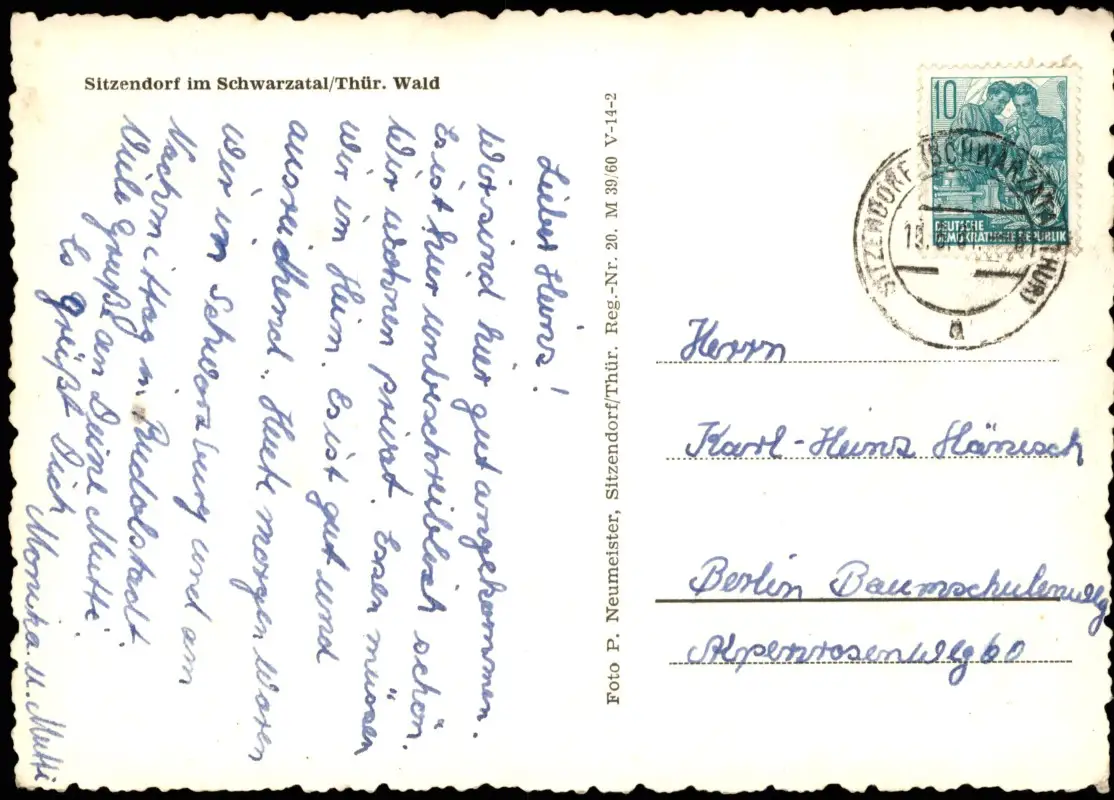 Sitzendorf im Schwarzatal/Thür. Wald
Lieber Heinz!
Wir sind hier gut angekommen.
Es ist hier unbeschreiblich schön.
Wir wohnen privat. Essen müssen
wir im Heim. Es ist gut und
ausreichend. Heute morgen waren
wir in Schwarzburg und am
Nachmittag in Rudolstadt.
Viele Grüße an Deine Mutti.
Es grüßt Dich Monika u. Mutti
Foto P. Neumeister, Sitzendorf/Thür. Reg.-Nr. 20. M 39/60 V-14-2
10
DEUTSCHE
DEMOKRATISCHE REPUBLIK
SITZENDORF (SCHWARZATAL) (THÜR)
a
Herrn
Karl-Heinz Hänisch
Berlin Baumschulenweg
Alpenrosenweg 60